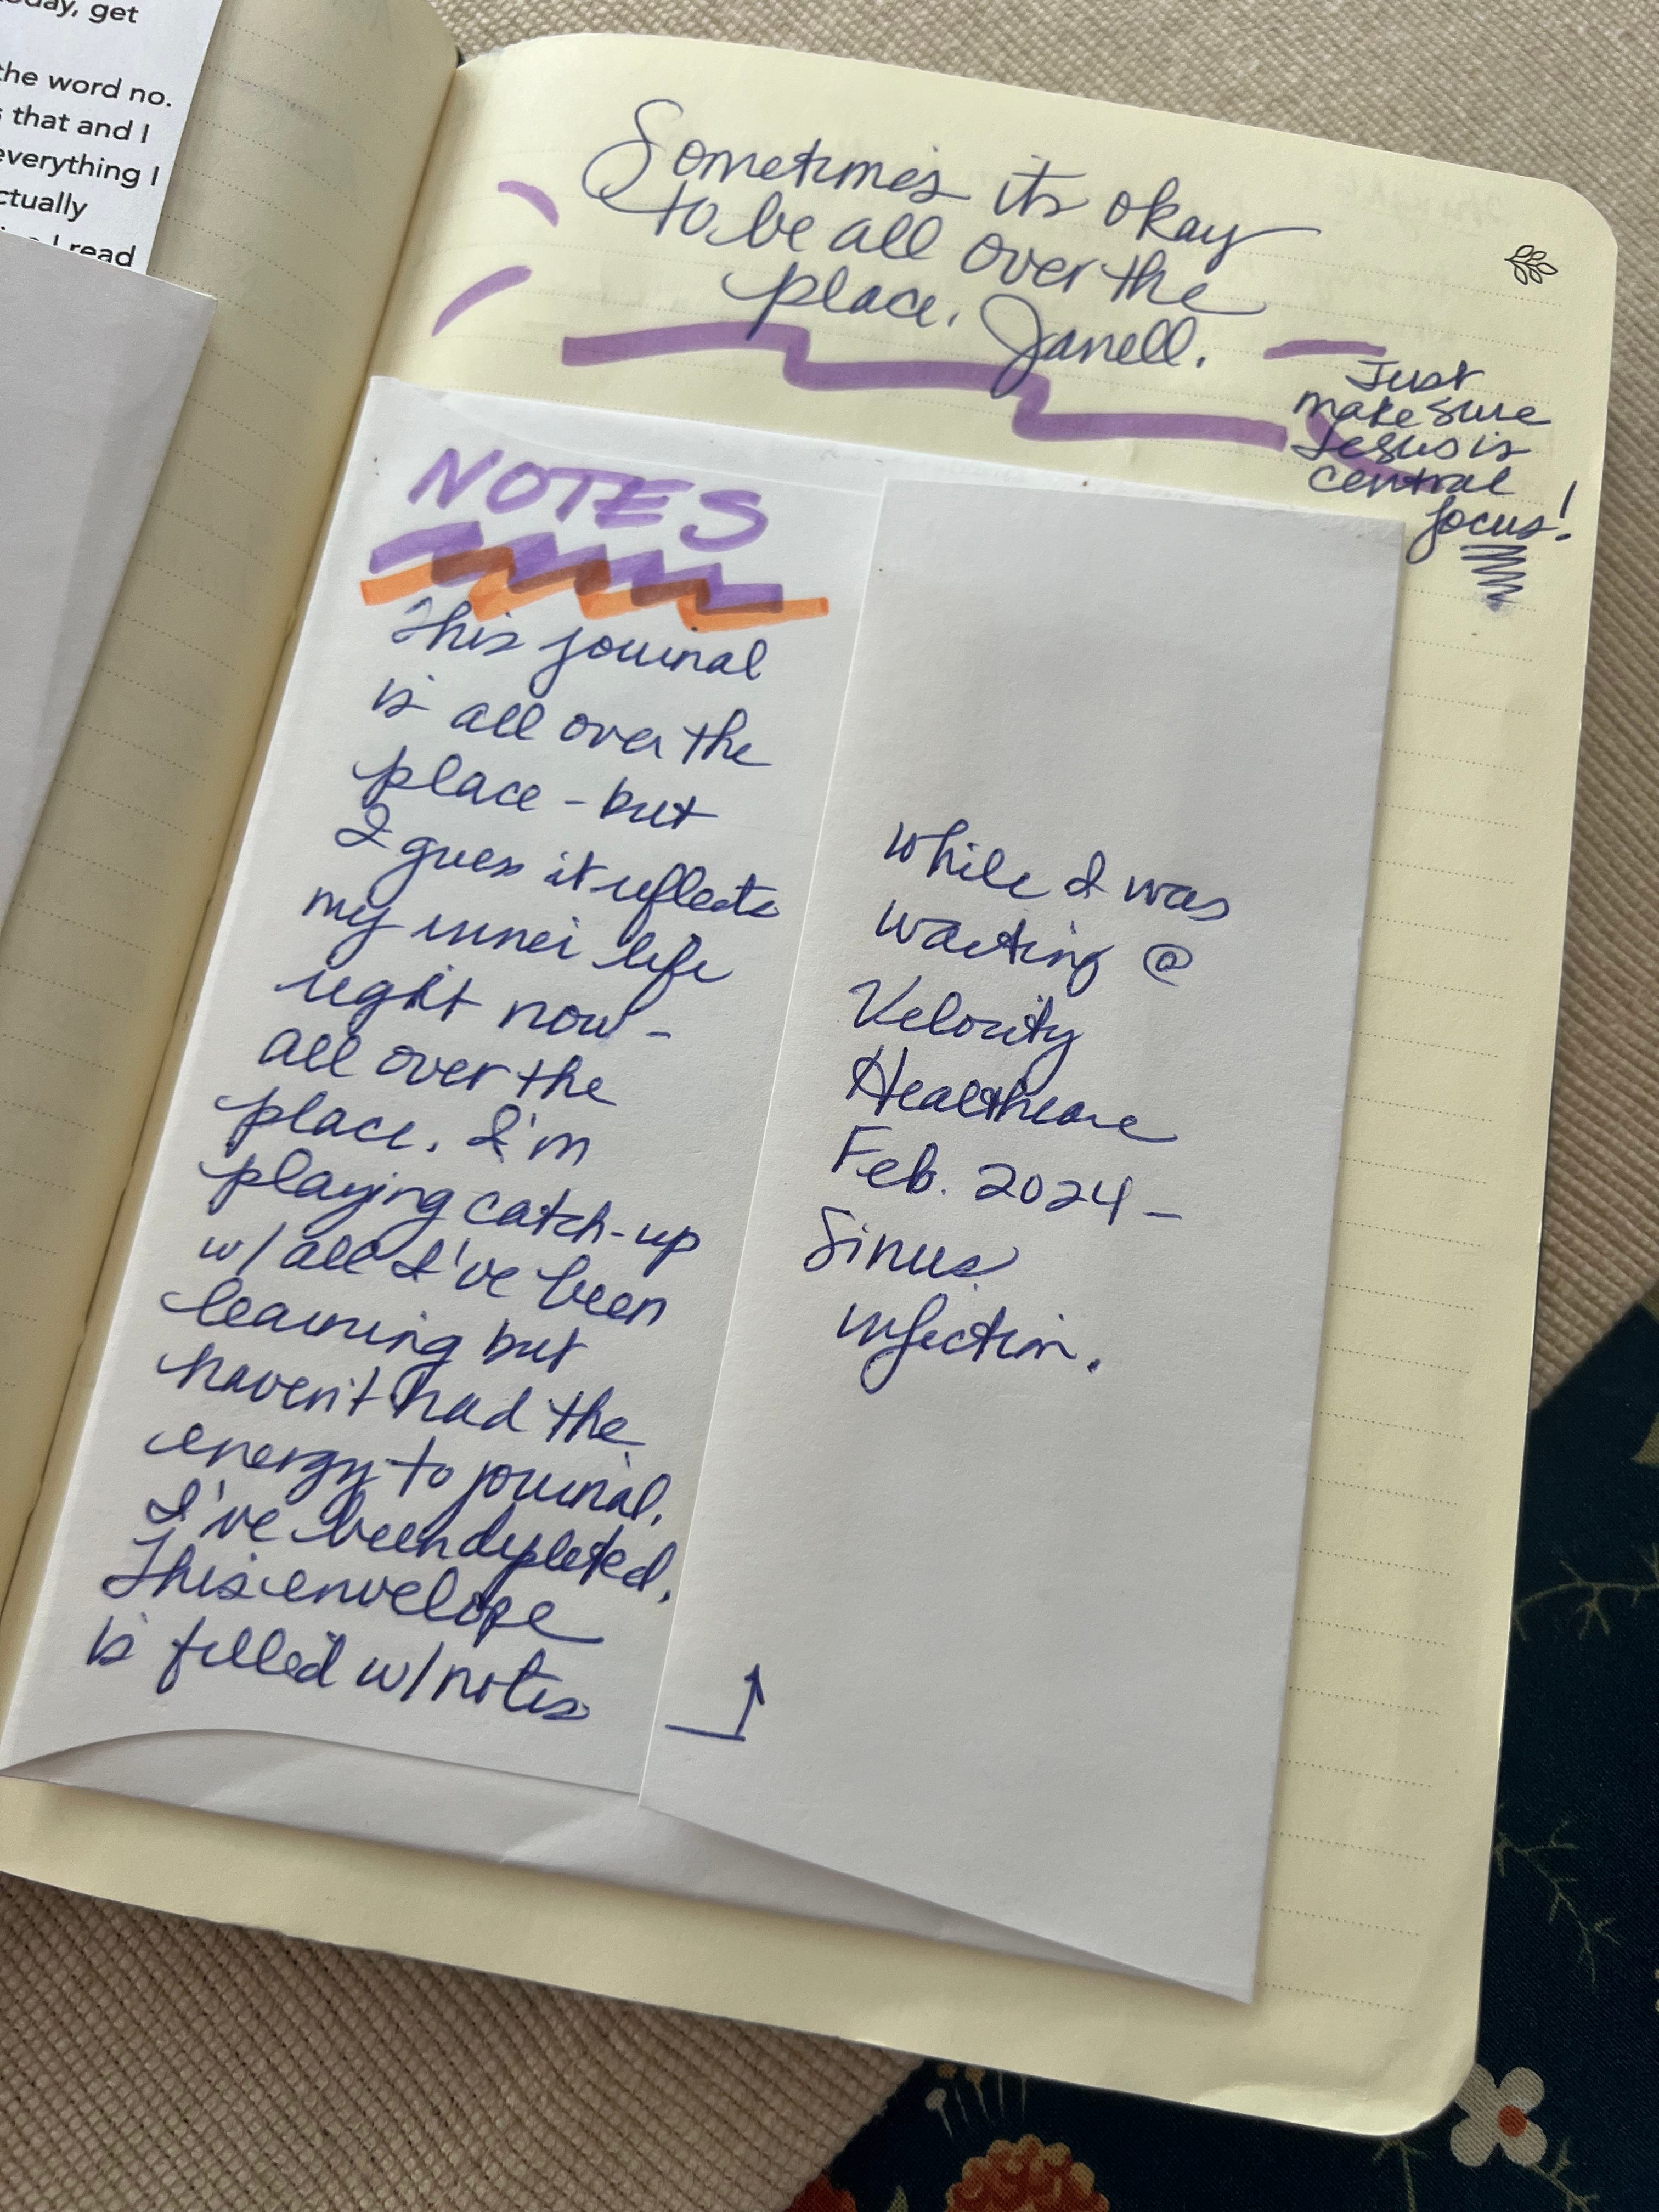 oday, get
the word no.
s that and I
everything I
ctually
I read
Sometimes its okay
to be all over the
place. Janell.
Just
make sure
Jesus is
central
focus!
NOTES
This journal
is all over the
place - but
I guess it reflects
my inner life
right now -
all over the
place. I'm
playing catch-up
w/ all I've been
learning but
haven't had the
energy to journal.
I've been depleted.
This envelope
is filled w/ notes
while I was
waiting @
Velocity
Healthcare
Feb. 2024 -
Sinus
infection.